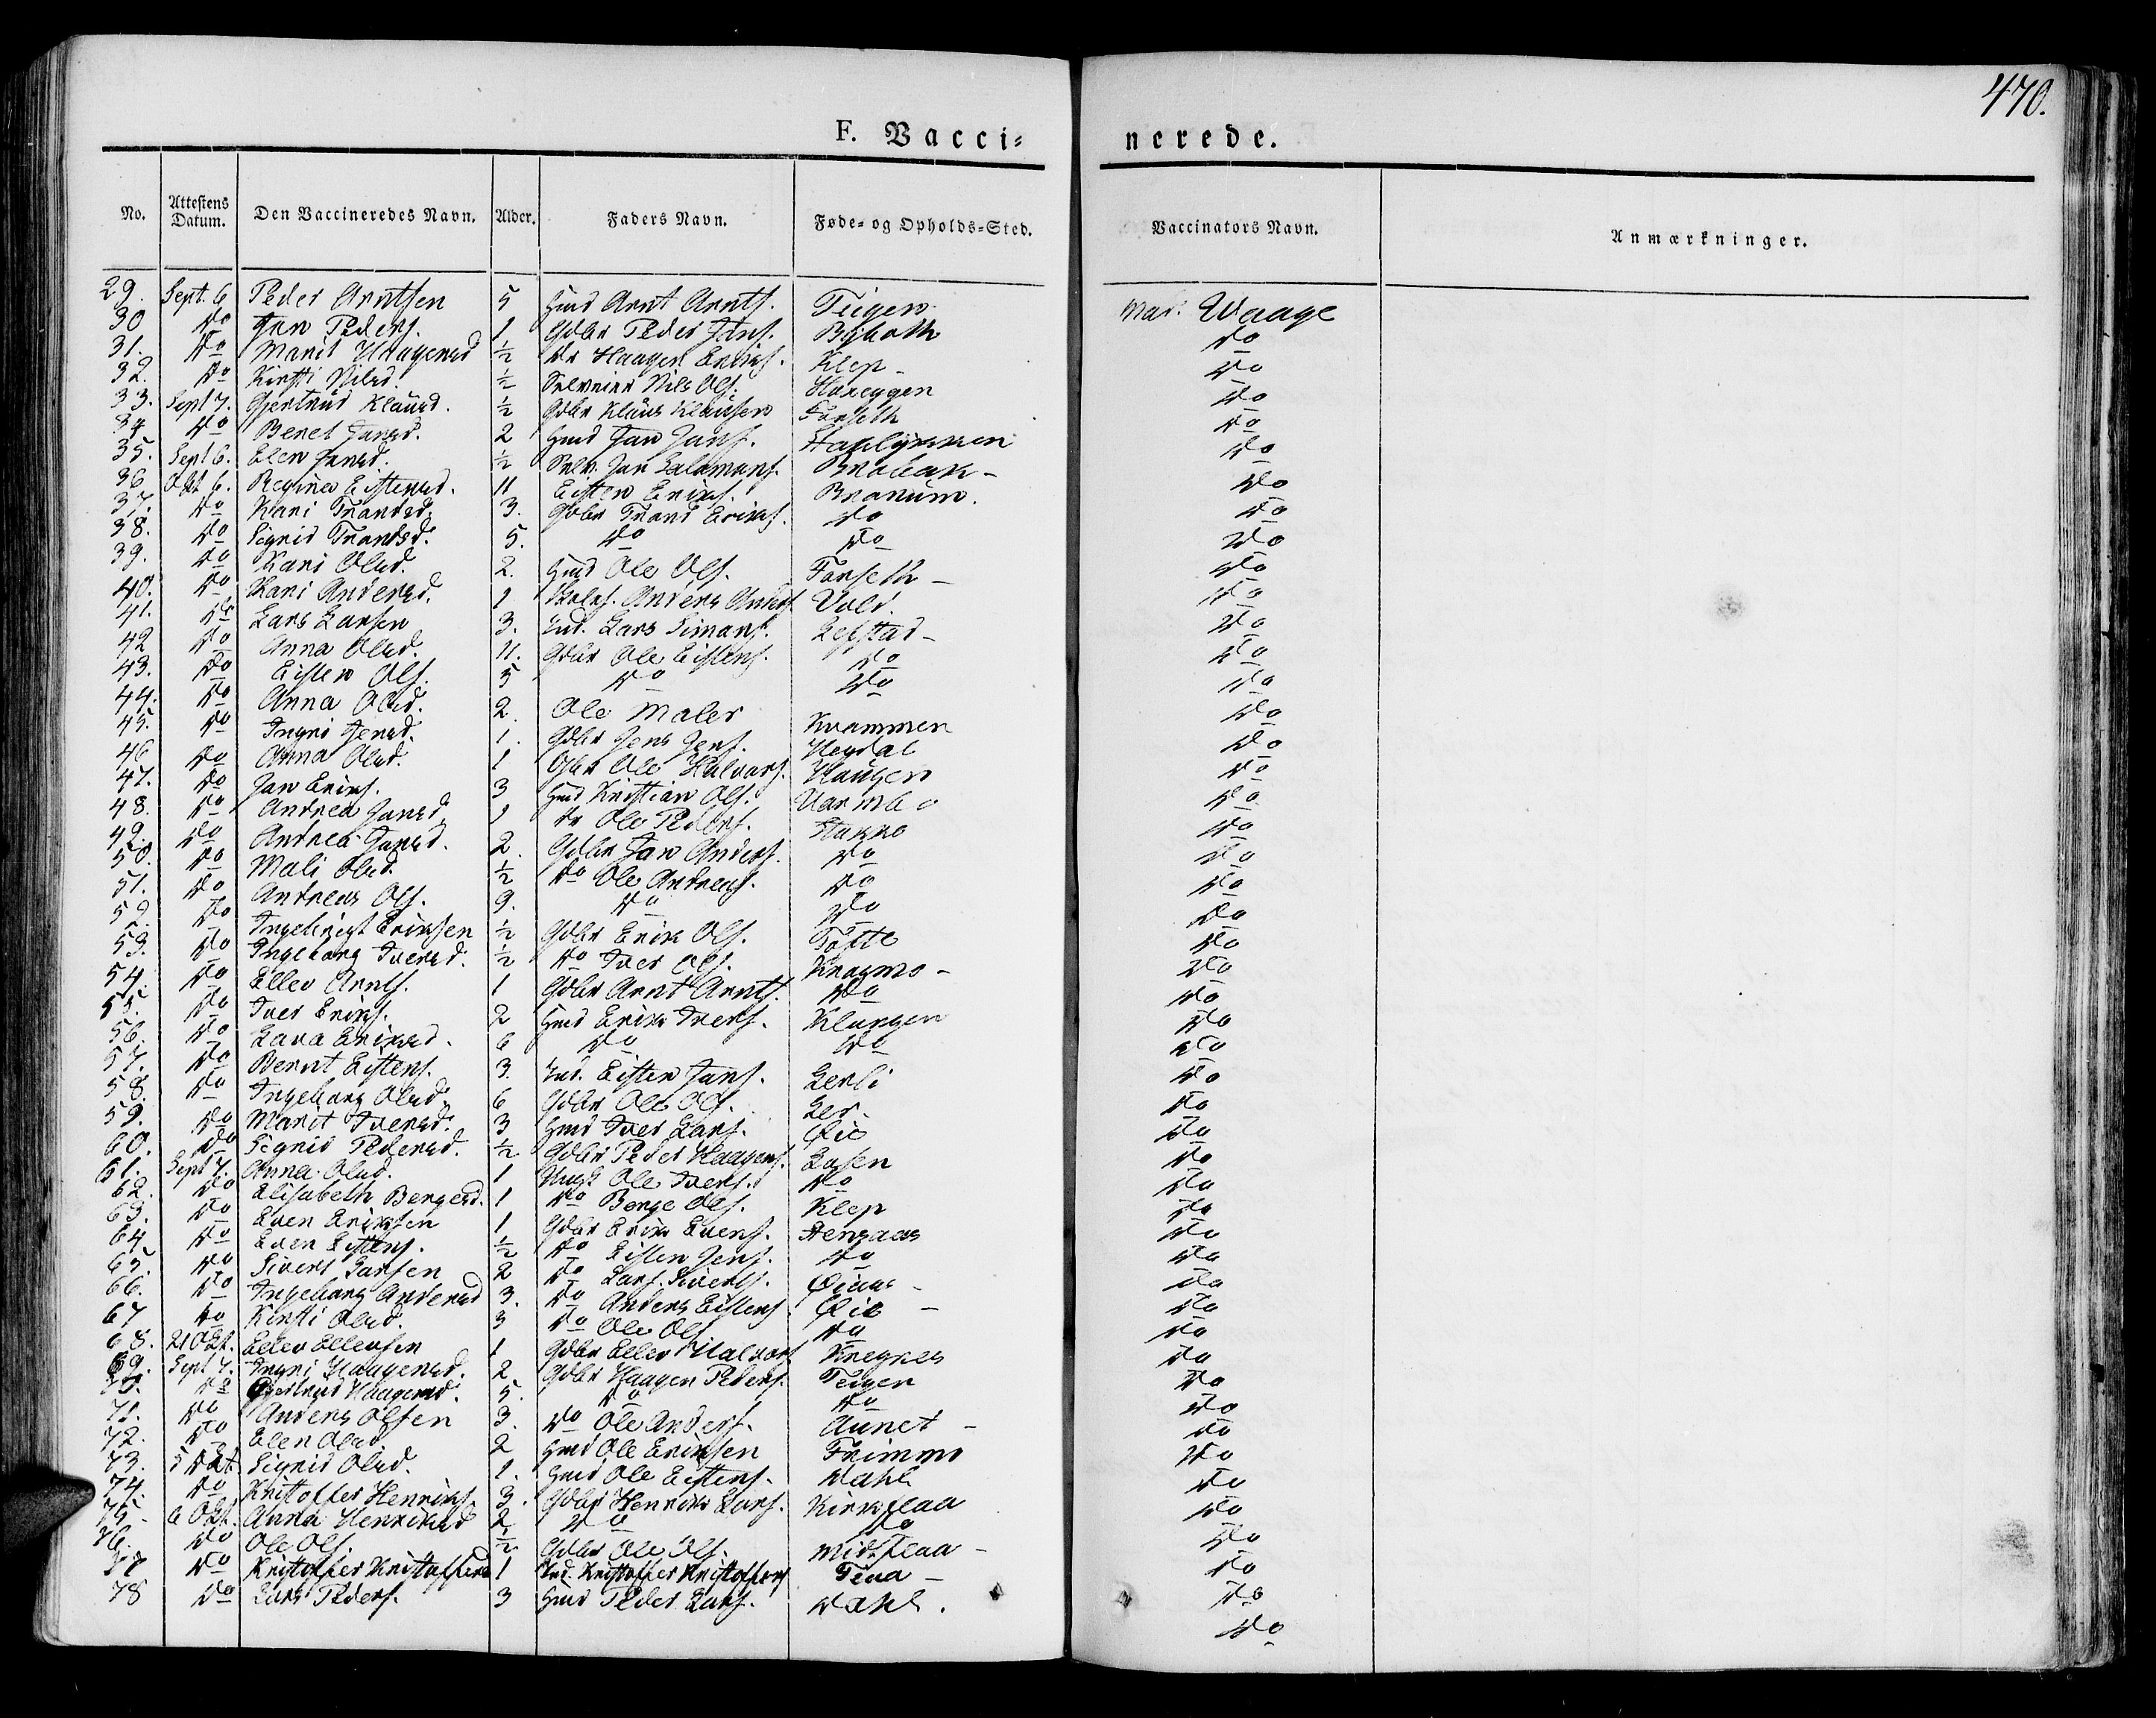 470.
F. Vacci- nerede.
No. Attestens Datum. Den Vaccineredes Navn. Alder. Faders Navn. Føde- og Opholds-Sted. Vaccinators Navn. Anmærkninger.
29. Sept. 6 Peder Arntsen 5 Hmd Arnt Arnts. Teigen Waage
30 do Jon Peders. 1 Gdbr Peder Jons. do
31. do Marit Haagensd ½ do Haagen Eriks. Klep do
32. do Kirsti Nilsd. ½ Nils Ols. do
33. Sept 7. Gjertrud Klausd. ½ Gdbr Klaus Klausen Forseth do
34 do Beret Jonsd. 2 Hmd Jon Jons. do
35. Sept 6. Elen Jonsd. ½ Jon Salamons. do
36 Okt 6. Regina Eistensd. 11 Eisten Eriks. do
37. do Kari Trondsd. 3. Gdbr Trond Eriks. do do
38. do Sigrid Trondsd. 5. do do do
39. do Kari Olsd. 2. Hmd Ole Ols. Forseth do
40. do Kari Andersd. 1 Anders Anders. Vold. do
41. do Lars Larsen 3. Ind. Lars Simons. Lefstad do
42 do Anna Olsd. 11. Gdbr Ole Eistens. do do
43. do Eisten Ols. 5 do do do
44. do Anna Olsd. 2. Ole Maler Krammen do
45. do Ingri Jensd. 1. Gdbr Jens Jens. Hegdal do
46 do Anna Olsd. 1 Gdbr Ole Halvors. Haugen do
47. do Jon Eriks. 3 Hmd Kristian Ols. Varmbo do
48. do Andrea Jonsd. 1 do Ole Peders. do
49. do Andrea Jonsd. 2. Gdbr Jon Anders. do do
50. do Mali Olsd. ½ do Ole Andreas. do do
51. do Andreas Ols. 9. do do do
52. do Ingebrigt Eriksen ½ Gdbr Erik Ols. do
53. do Ingeborg Iversd. ½ do Iver Ols. Kragmo do
54. do Ellev Arnts. 1 Gdbr Arnt Arnts. do do
55. do Iver Eriks. 2 Hmd Erik Ivers. Klungen do
56. do Eriksd. 6 do do do
57. do Bernt Eistens. 3. Ind. Eisten Jons. Lerli do
58. do Ingeborg Olsd. 6 Gdbr Ole Ols. Ler do
59. do Marit Iversd. 3 Hmd Iver Lars. Øie do
60. do Sigrid Pedersd. ½ Gdbr Peder Haagens. Losen do
61. Sept 7. Anna Olsd. 1 Ole Ivers. do do
62. do Elisabeth Bergesd. 1 do Berge Ols. Klep do
63. do Even Eriksen 1 Gdbr Erik Evens. do
64 do Even Eistens. ½ do Eisten Jens. do do
65. do Sivert Larsen 2 do Lars Siverts. do
66. do Ingeborg Andersd 3. do Anders Eistens. Øie do
67 do Kirsti Olsd. 3 do Ole Ols do do
68. 21 Okt. Ellev Ellevsen 1 Gdbr Ellev Halvors. do
69. Sept 7. Ingri Haagensd. 2. Gdbr Haagen Peders. Teigen do
70. do Gjertrud Haagensd. 5. do do do
71. do Anders Olsen 3. do Ole Anders. Aunet do
72. do Elen Olsd 2 Hmd Ole Eriksen do
73. 5 Okt Sigrid Olsd. 1. Hmd Ole Eistens. Dahl do
74. do Kristoffer Henriks. 3. Gdbr Henrik Lars. Kirkflaa do
75. 6 Okt. Anna Henriksd 2 do do do
76. do Ole Ols. ½ Gdbr Ole Ols. Midtflaa do
77 do Kristoffer Kristoffers 1 Ind. Kristoffer Kristoffers do
78 do Lars Peders. 3 Hmd Peder Lars. Dahl. do
do